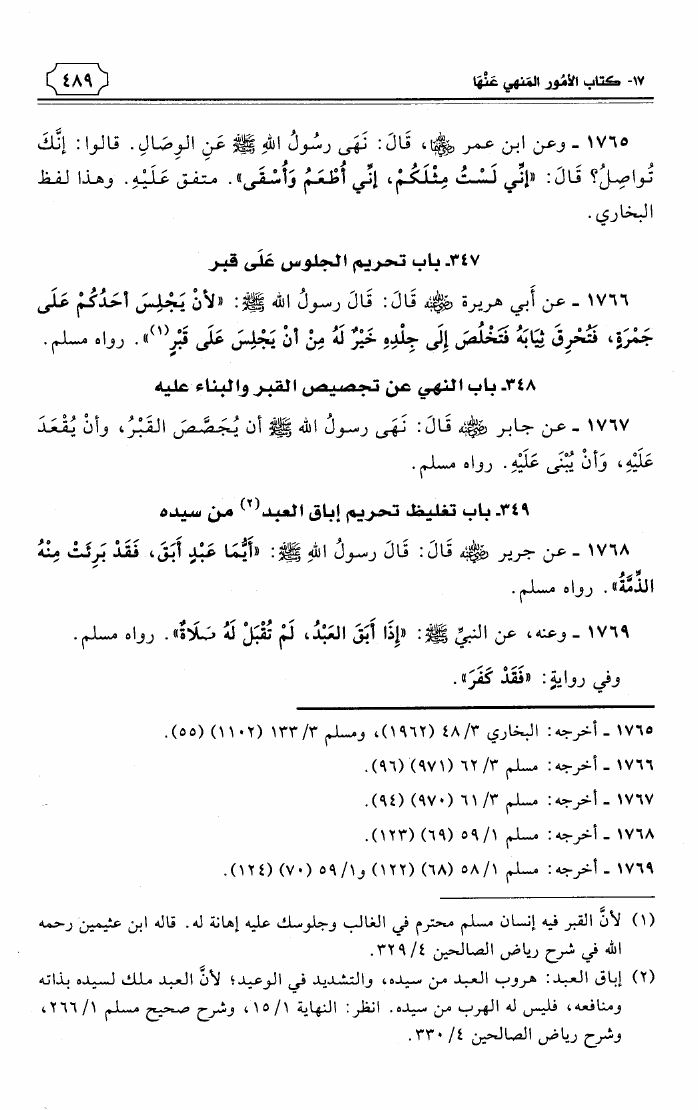 ١٧- كتاب الأمُور المَنهي عَنْهَا
٤٨٩
١٧٦٥ ـ وعن ابن عمر ﵄، قَالَ: نَهَى رسُولُ اللهِ ﷺ عَنِ الوِصَالِ. قالوا: إنَّكَ
تُواصِلُ؟ قَالَ: «إنِّي لَسْتُ مِثْلَكُمْ، إنِّي أُطْعَمُ وَأُسْقَى». متفق عَلَيْهِ. وهذا لفظ
البخاري.
٣٤٧ـ باب تحريم الجلوس عَلَى قبر
١٧٦٦ ـ عن أَبي هريرة ﵁ قَالَ: قَالَ رسولُ الله ﷺ: «لأنْ يَجْلِسَ أحَدُكُمْ عَلَى
جَمْرَةٍ، فَتُحْرِقَ ثِيَابَهُ فَتَخْلُصَ إِلَى جِلْدِهِ خَيْرٌ لَهُ مِنْ أنْ يَجْلِسَ عَلَى قَبْرٍ(١)». رواه مسلم.
٣٤٨ـ باب النهي عن تجصيص القبر والبناء عليه
١٧٦٧ ـ عن جابر ﵁ قَالَ: نَهَى رسولُ الله ﷺ أن يُجَصَّصَ القَبْرُ، وأنْ يُقْعَدَ
عَلَيْهِ، وَأنْ يُبْنَى عَلَيْهِ. رواه مسلم.
٣٤٩ـ باب تغليظ تحريم إباق العبد(٢) من سيده
١٧٦٨ ـ عن جرير ﵁ قَالَ: قَالَ رسولُ اللهِ ﷺ: «أَيُّمَا عَبْدٍ أَبَقَ، فَقَدْ بَرِئَتْ مِنْهُ
الذِّمَّةُ». رواه مسلم.
١٧٦٩ ـ وعنه، عن النبيِّ ﷺ: «إِذَا أَبَقَ العَبْدُ، لَمْ تُقْبَلْ لَهُ صَلَاةٌ». رواه مسلم.
وفي روايةٍ: «فَقَدْ كَفَرَ».
١٧٦٥ ـ أخرجه: البخاري ٣/ ٤٨ (١٩٦٢)، ومسلم ٣/ ١٣٣ (١١٠٢) (٥٥).
١٧٦٦ ـ أخرجه: مسلم ٣/ ٦٢ (٩٧١) (٩٦).
١٧٦٧ ـ أخرجه: مسلم ٣/ ٦١ (٩٧٠) (٩٤).
١٧٦٨ ـ أخرجه: مسلم ١/ ٥٩ (٦٩) (١٢٣).
١٧٦٩ ـ أخرجه: مسلم ١/ ٥٨ (٦٨) (١٢٢) و١/ ٥٩ (٧٠) (١٢٤).
(١) لأنَّ القبر فيه إنسان مسلم محترم في الغالب وجلوسك عليه إهانة له. قاله ابن عثيمين رحمه
الله في شرح رياض الصالحين ٤/ ٣٢٩.
(٢) إباق العبد: هروب العبد من سيده، والتشديد في الوعيد؛ لأنَّ العبد ملك لسيده بذاته
ومنافعه، فليس له الهرب من سيده. انظر: النهاية ١/ ١٥، وشرح صحيح مسلم ١/ ٢٦٦،
وشرح رياض الصالحين ٤/ ٣٣٠.